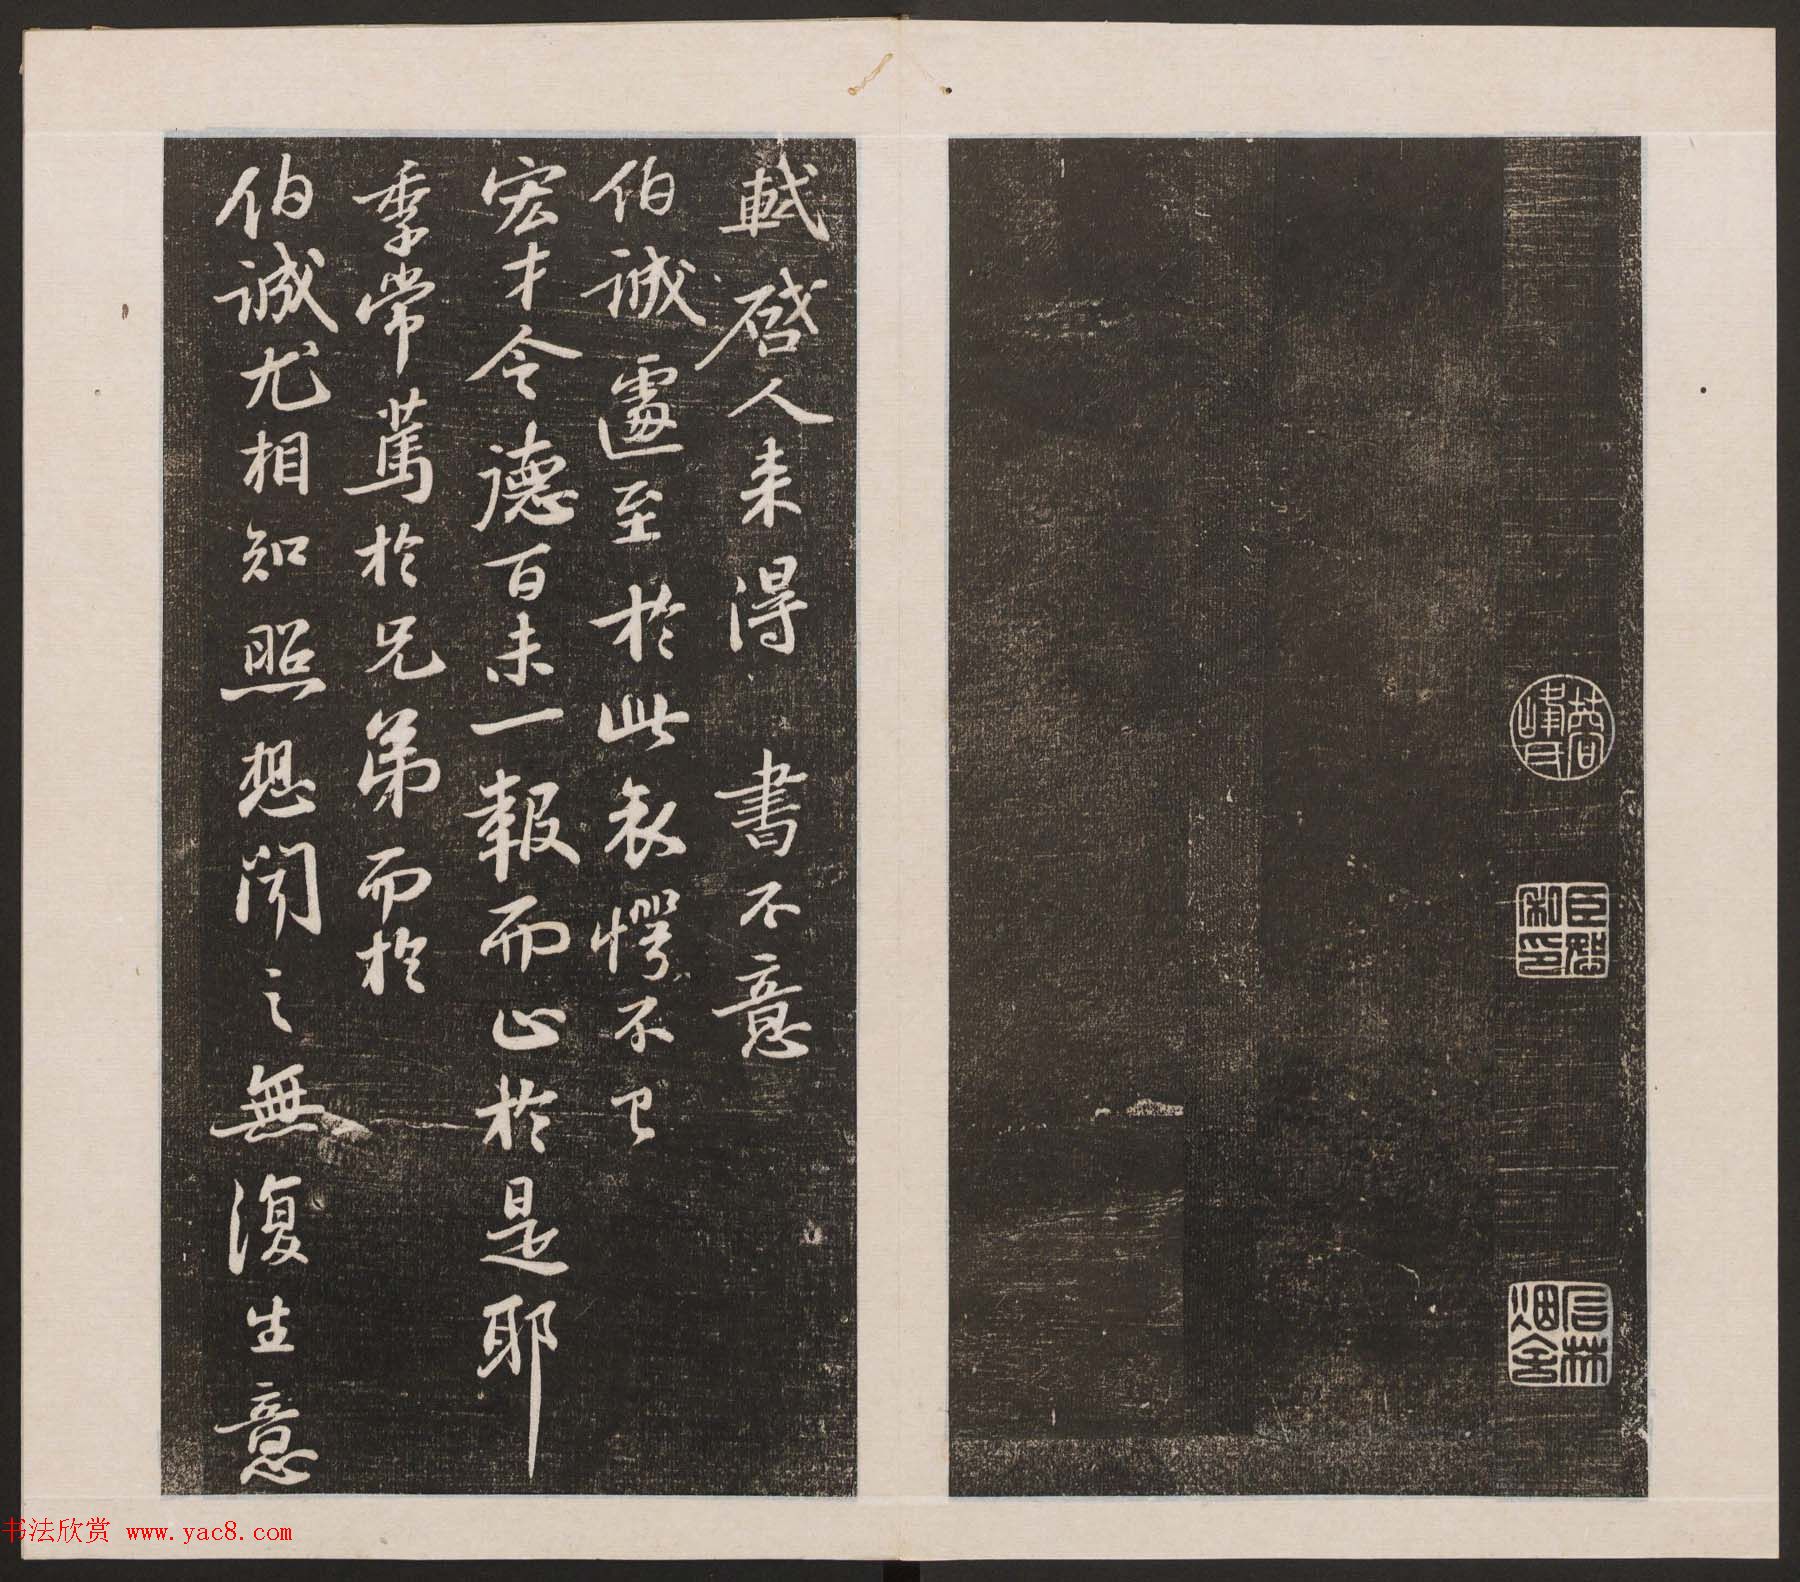 軾啓人来得書不意
伯誠遽至於此哀愕不已
宏才令德百未一報而止於是耶
季常篤於兄弟而於
伯誠尤相知照想聞之無復生意
书法欣赏 www.yac8.com